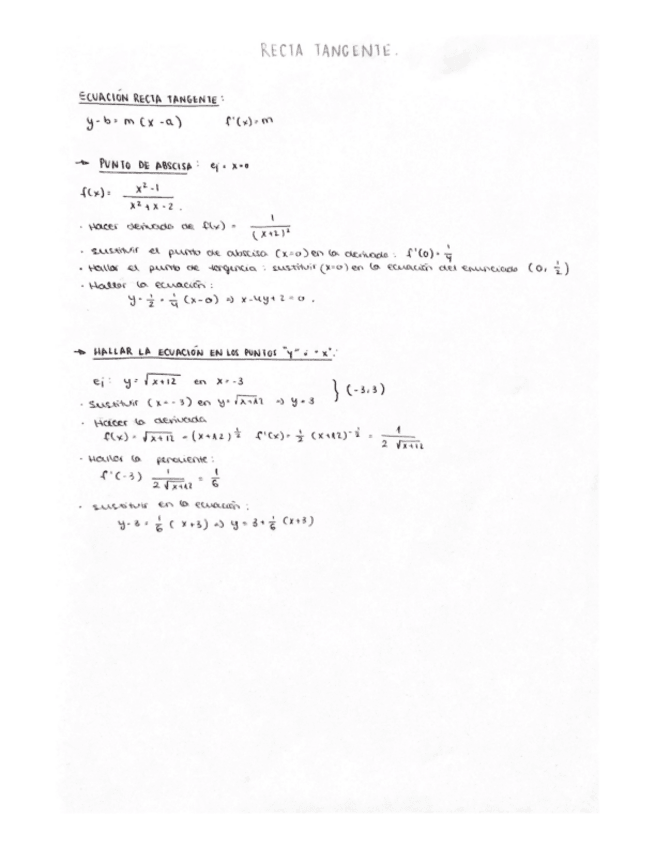 RECTA TANGENTE.
ECUACIÓN RECTA TANGENTE:
y-b = m (x-a) f'(x)=m
→ PUNTO DE ABSCISA: ej = x=0
f(x) = (x²-1)/(x²+x-2).
· Hacer derivada de f(x) = 1/(x+2)²
· Sustituir el punto de abscisa (x=0) en la derivada: f'(0)=1/4
· Hallar el punto de tangencia: sustituir (x=0) en la ecuación del enunciado (0, 1/2)
· Hallar la ecuación:
y-1/2 = 1/4 (x-0) => x-4y+2=0.
→ HALLAR LA ECUACIÓN EN LOS PUNTOS "y" = "x":
ej: y=√x+12 en x=-3
· Sustituir (x=-3) en y=√x+12 => y=3 } (-3,3)
· Hacer la derivada
f(x)=√x+12 = (x+12)^1/2 f'(x)=1/2 (x+12)^-1/2 = 1/(2√x+12)
· Hallar la pendiente:
f'(-3) 1/(2√x+12) = 1/6
· sustituir en la ecuación:
y-3 = 1/6 (x+3) => y = 3+1/6 (x+3)